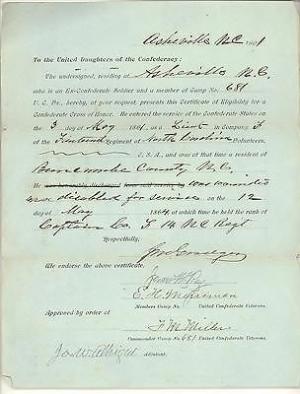 Asheville N.C. 1901
To the United Daughters of the Confederacy:
The undersigned, residing at Asheville N.C.
who is an Ex-Confederate Soldier and a member of Camp No. 681
U. C. Vs., hereby, at your request, presents this Certificate of Eligibility for a
Confederate Cross of Honor. He entered the service of the Confederate States on
the 3 day of May 1861, as a Lieut in Company F
of the Regiment of North Carolina Volunteers,
C. S. A., and was at that time a resident of
Buncombe County N.C.
He was honorably discharged was wounded
and disabled for service on the 12
day of May 1864, at which time he held the rank of
Captain Co. F 14 NC Regt
Respectfully,
We endorse the above certificate,
E. H.
Members Camp No. United Confederate Veterans.
Approved by order of
Miller
Commander Camp No. 681 United Confederate Veterans.
Jas. W. Albright Adjutant.